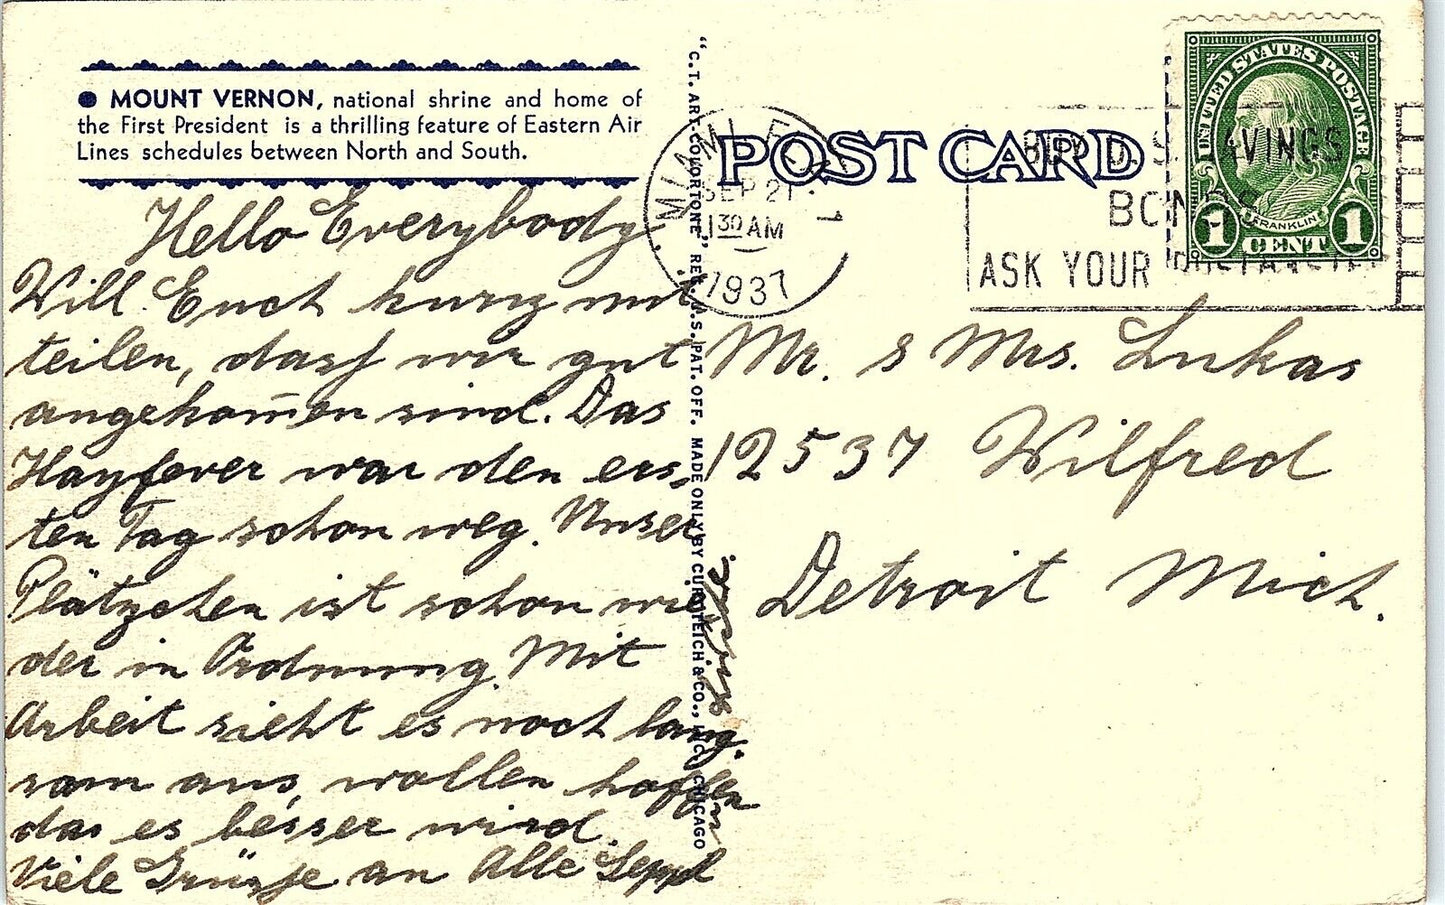 ● MOUNT VERNON, national shrine and home of
the First President is a thrilling feature of Eastern Air
Lines schedules between North and South.
Hello Everybody.
Will Euch kurz mit
teilen, dass wir gut
angekom̅en sind. Das
Hayfever war den ers-
ten Tag schon weg. Unser
Plätzchen ist schon wie
der in Ordnung. Mit
Arbeit sieht es noch lang-
sam aus, wollen hoffen
das es besser wird.
Viele Grüsse an Alle Seppl
"C.T. ART-COLORTONE" REG. U.S. PAT. OFF. MADE ONLY BY CURT TEICH & CO., INC., CHICAGO
POST CARD
MIAMI, FLA. 1
SEP 21
11 30 AM
1937
BUY U.S. SAVINGS
BONDS
ASK YOUR POSTMASTER
UNITED STATES POSTAGE
FRANKLIN
1 CENT 1
Mr. & Mrs. Lukas
12537 Wilfred
Detroit Mich.